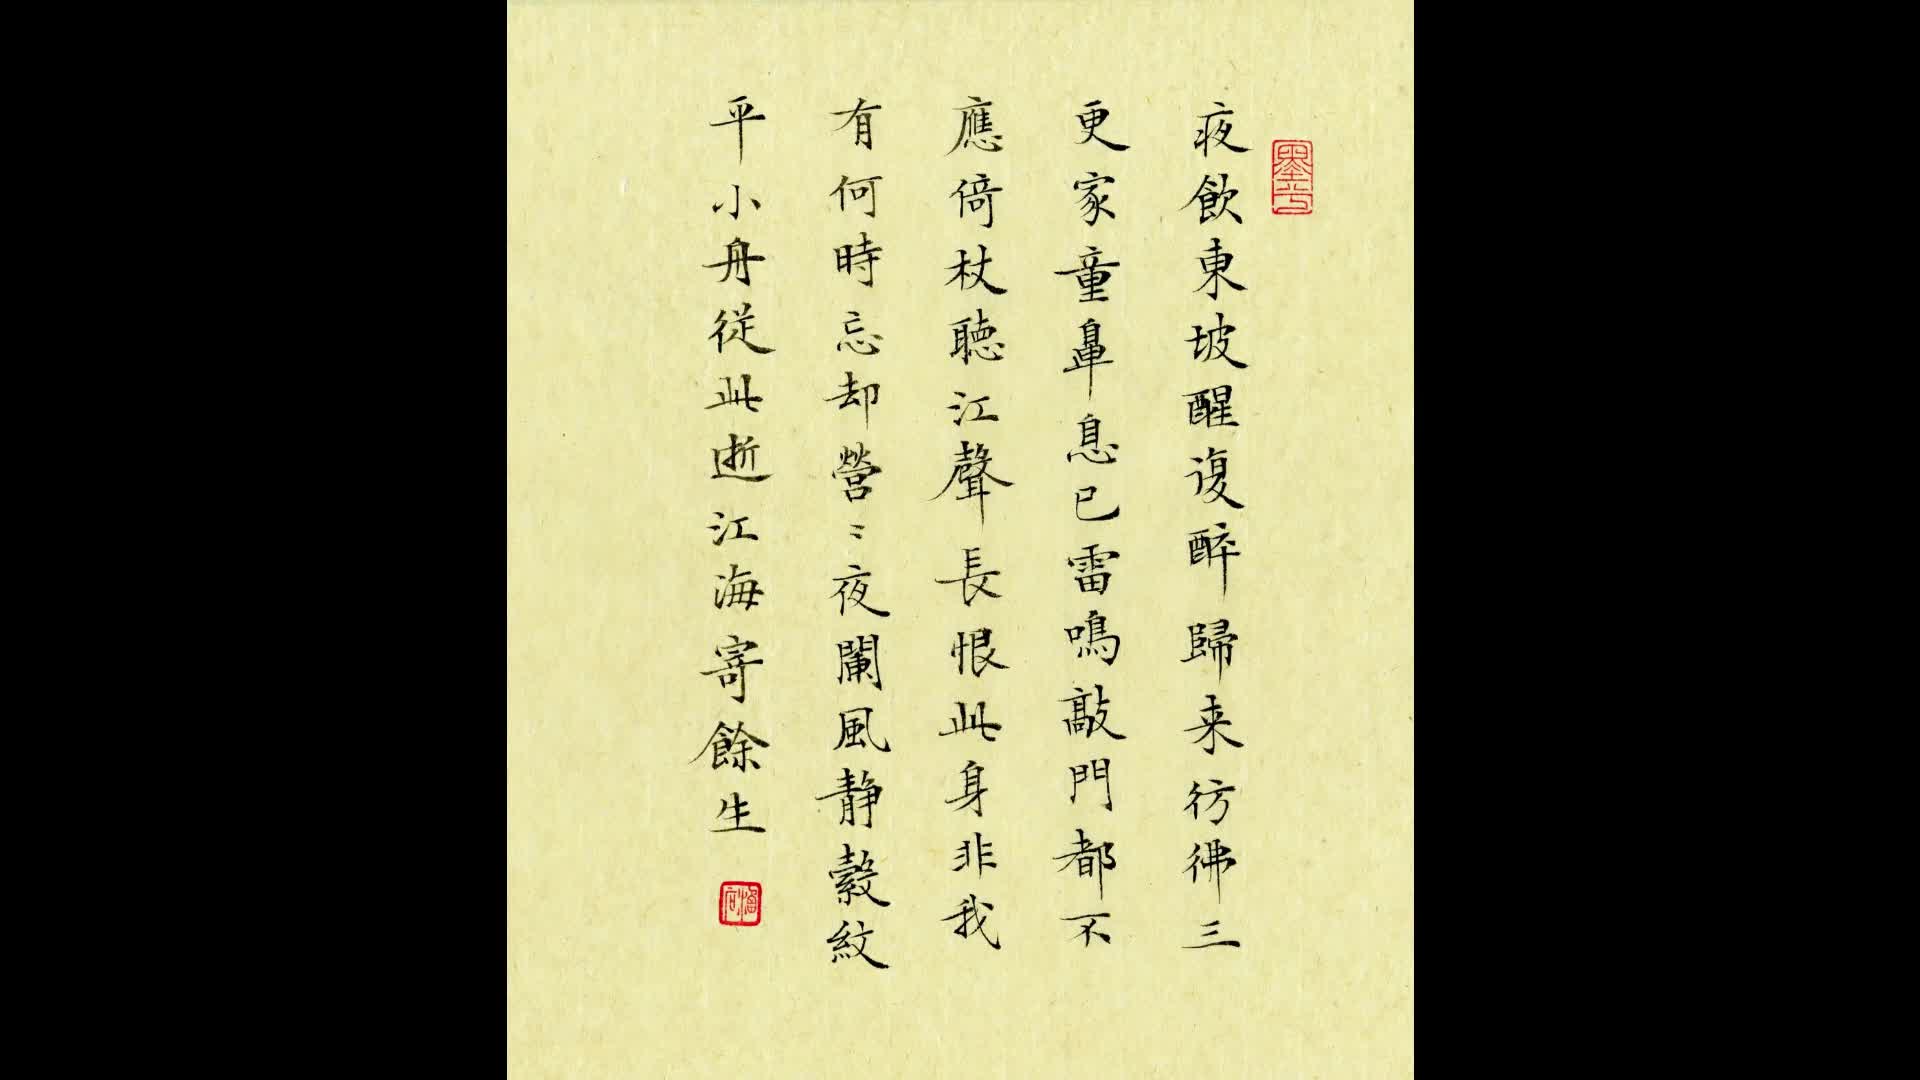 夜飲東坡醒復醉歸来彷彿三
更家童鼻息已雷鳴敲門都不
應倚杖聽江聲長恨此身非我
有何時忘却營〻夜闌風静縠紋
平小舟從此逝江海寄餘生